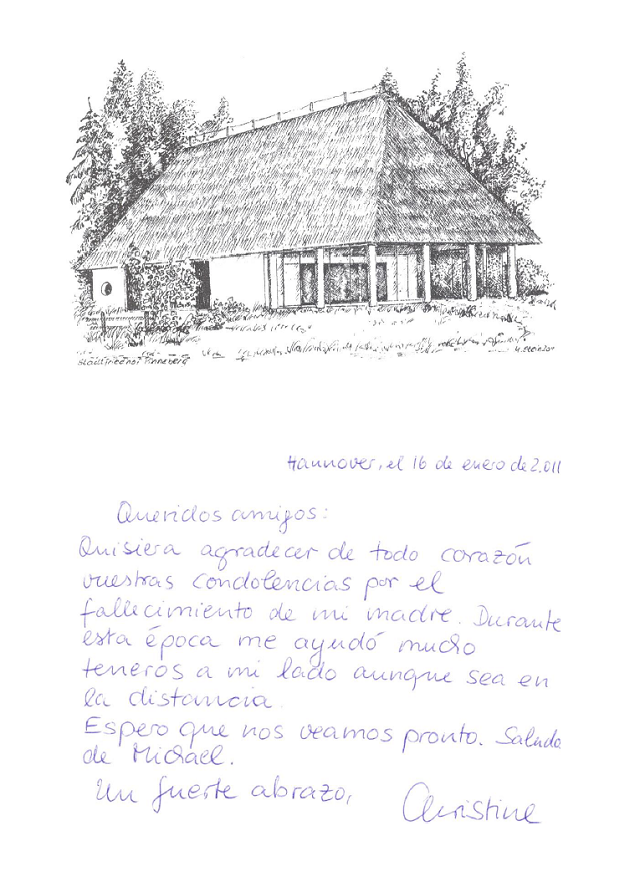 Stadtfriedhof Pinneberg
Hannover, el 16 de enero de 2.011
Queridos amigos:
Quisiera agradecer de todo corazón
vuestras condolencias por el
fallecimiento de mi madre. Durante
esta época me ayudó mucho
teneros a mi lado aunque sea en
la distancia.
Espero que nos veamos pronto. Saludo
de Michael.
Un fuerte abrazo,
Christine